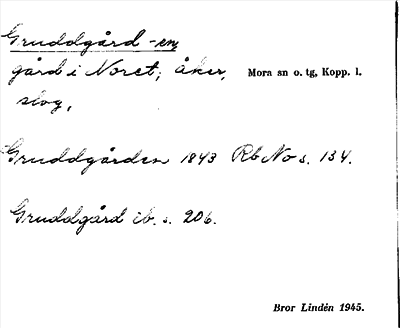 Gruddgård -en
gård i Noret; åker, Mora sn o. tg, Kopp. l.
slog,
Gruddgården 1843 Rb No s. 134.
Gruddgård ib. s. 206.
Bror Lindén 1945.